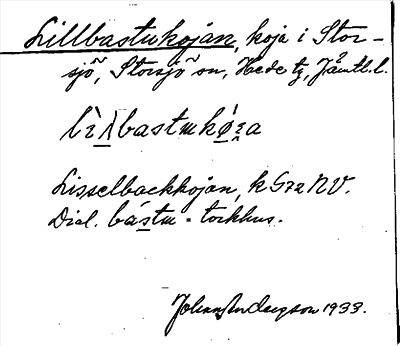 Lillbastukojan, koja i Stor-
sjö, Storsjö sn, Hede tg, Jämtl. l.
bastukö́
Lisselbackkojan, k 572 NV.
Dial. bástu = torkhus.
Johan Andersson 1933.